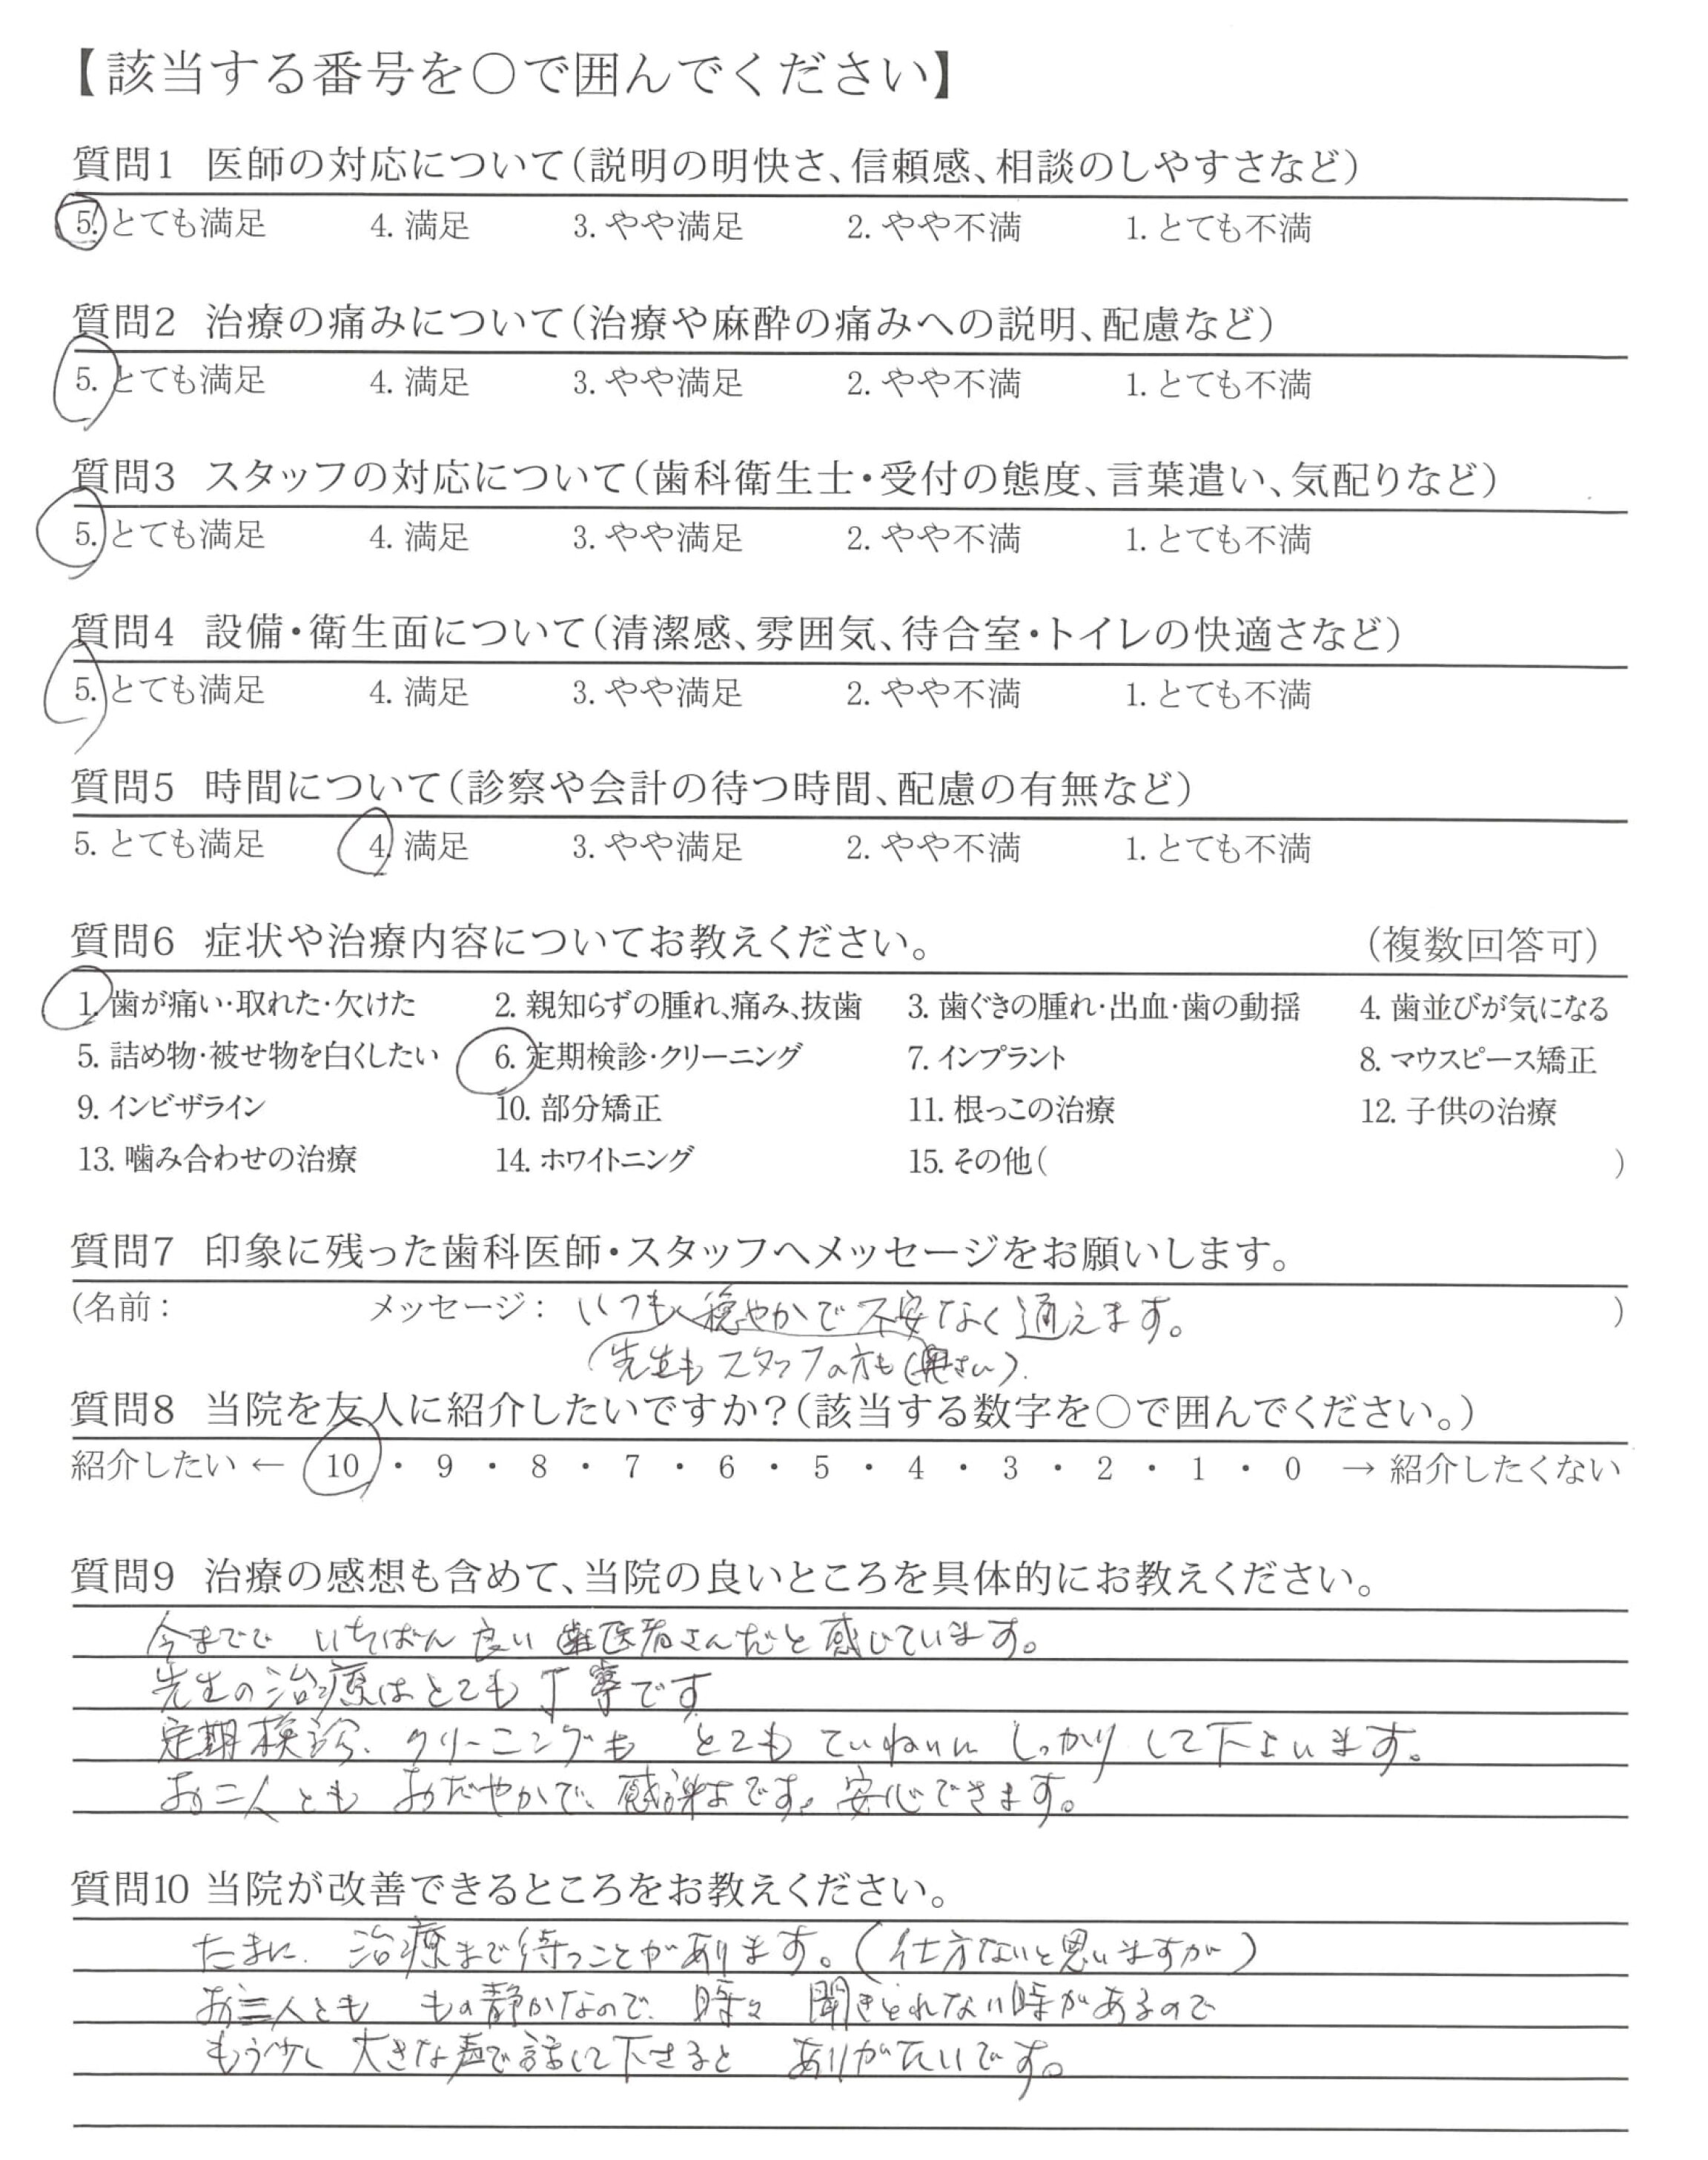 【該当する番号を○で囲んでください】
質問1 医師の対応について(説明の明快さ、信頼感、相談のしやすさなど)
5. とても満足 4. 満足 3. やや満足 2. やや不満 1. とても不満
質問2 治療の痛みについて(治療や麻酔の痛みへの説明、配慮など)
5. とても満足 4. 満足 3. やや満足 2. やや不満 1. とても不満
質問3 スタッフの対応について(歯科衛生士・受付の態度、言葉遣い、気配りなど)
5. とても満足 4. 満足 3. やや満足 2. やや不満 1. とても不満
質問4 設備・衛生面について(清潔感、雰囲気、待合室・トイレの快適さなど)
5. とても満足 4. 満足 3. やや満足 2. やや不満 1. とても不満
質問5 時間について(診察や会計の待つ時間、配慮の有無など)
5. とても満足 4. 満足 3. やや満足 2. やや不満 1. とても不満
質問6 症状や治療内容についてお教えください。 (複数回答可)
1. 歯が痛い・取れた・欠けた 2. 親知らずの腫れ、痛み、抜歯 3. 歯ぐきの腫れ・出血・歯の動揺 4. 歯並びが気になる
5. 詰め物・被せ物を白くしたい 6. 定期検診・クリーニング 7. インプラント 8. マウスピース矯正
9. インビザライン 10. 部分矯正 11. 根っこの治療 12. 子供の治療
13. 噛み合わせの治療 14. ホワイトニング 15. その他( )
質問7 印象に残った歯科医師・スタッフへメッセージをお願いします。
(名前: メッセージ: いつも穏やかで不安なく通えます。 )
先生もスタッフの方も(奥さん).
質問8 当院を友人に紹介したいですか?(該当する数字を○で囲んでください。)
紹介したい ← 10 ・ 9 ・ 8 ・ 7 ・ 6 ・ 5 ・ 4 ・ 3 ・ 2 ・ 1 ・ 0 → 紹介したくない
質問9 治療の感想も含めて、当院の良いところを具体的にお教えください。
今までで いちばん 良い 歯医者さんだと感じています。
先生の治療はとても丁寧です
定期検診、クリーニングも とても ていねいに しっかり して下さいます。
お二人とも おだやかで、感じ よです。安心できます。
質問10 当院が改善できるところをお教えください。
たまに、治療まで待つことがあります。(仕方ないと思いますが)
お二人とも もの静かなので、時々 聞きとれない時があるので
もう少し 大きな声で話して下さると ありがたいです。